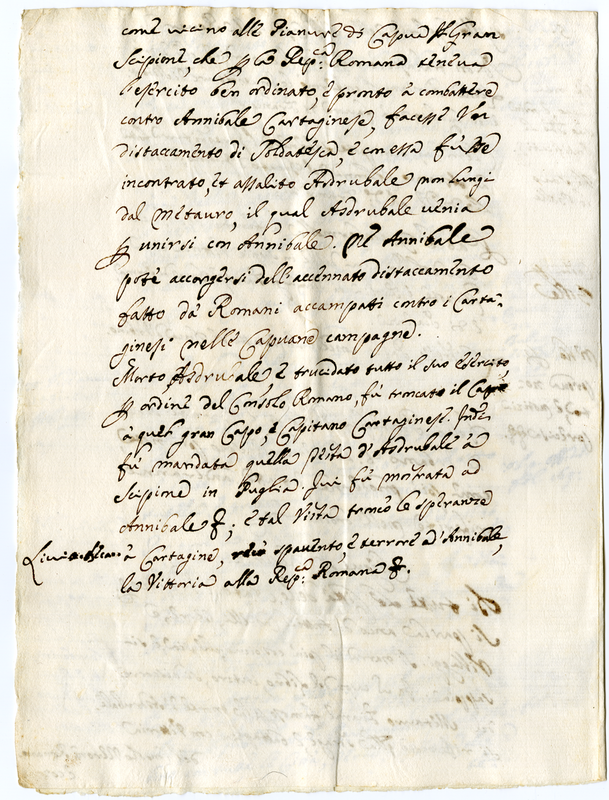 come vicino alle Pianure di Capua il Gran
Scipione, che p la Rep:ca Romana teneva
l'esercito ben ordinato, e pronto à combattere
contro Annibale Cartaginese, facesse Un
distaccamento di Soldatesca, e con essa fusse
incontrato, et assalito Asdrubale non lungi
dal Metauro, il qual Asdrubale venia
p unirsi con Annibale. Ne Annibale
potè accorgersi dell'accennato distaccamento
fatto da Romani accampati contro i Carta-
ginesi nelle Capuane campagne.
Morto Asdrubale, e trucidato tutto il suo esercito,
p ordine del Consolo Romano, fù troncato il Capo
à quel gran Capo, e Capitano Cartaginese. Indi
fù mandata quella Testa d'Asdrubale à
Scipione in Puglia. Ivi fù mostrata ad
Annibale; e tal Vista troncò le speranze
à Cartagine, spavento, e terrore ad Annibale,
la Vittoria alla Rep:ca Romana